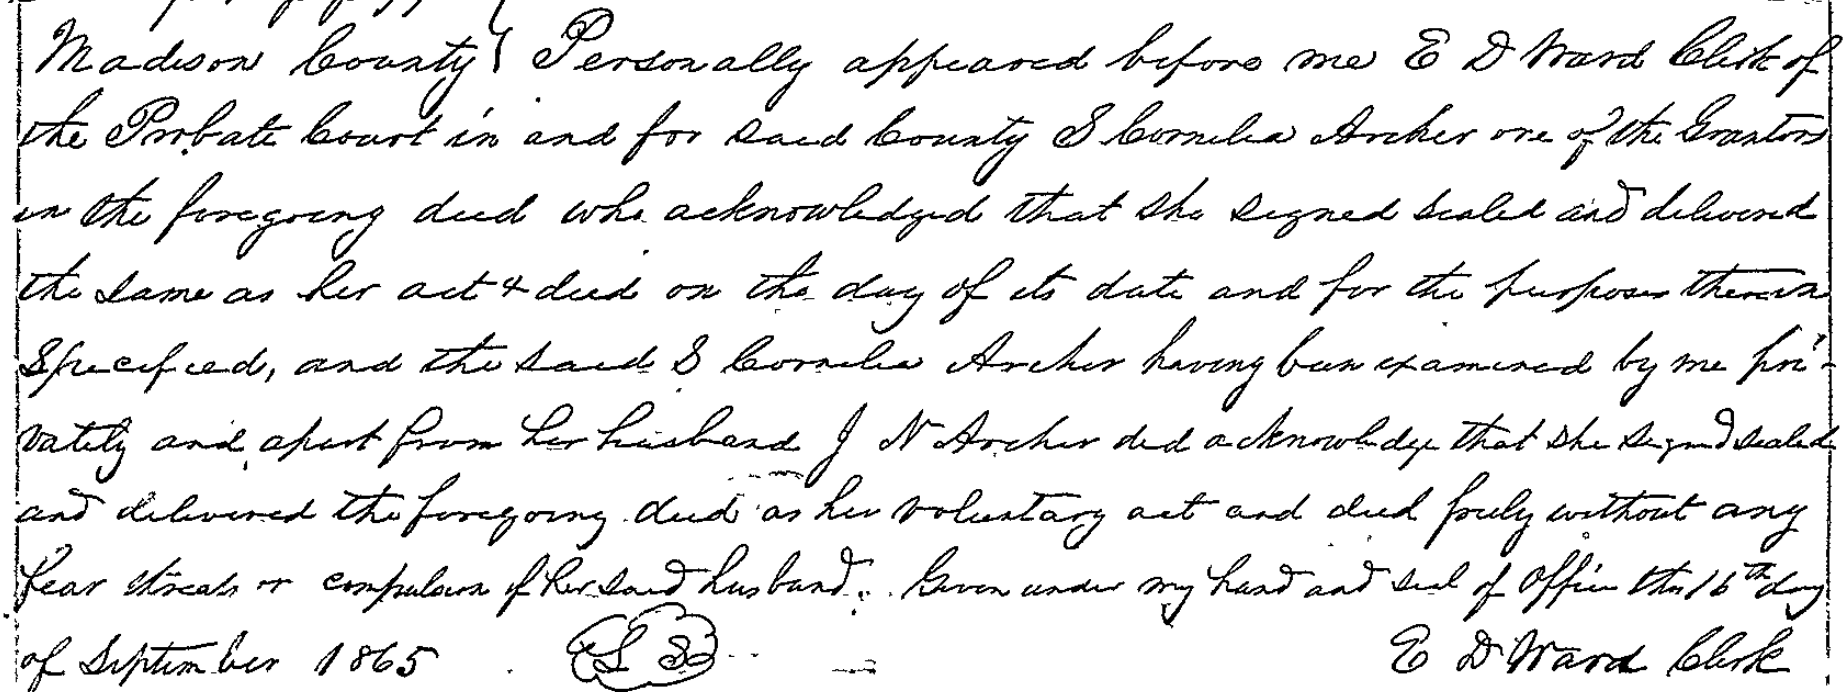 Madison County } Personally appeared before me E D Ward Clerk of
the Probate Court in and for said County S Cornelia Archer one of the Grantors
in the foregoing deed who acknowledged that she signed sealed and delivered
the same as her act & deed on the day of its date and for the purposes therein
Specified, and the said S Cornelia Archer having been examined by me pri-
vately and apart from her husband J N Archer did acknowledge that she signed sealed
and delivered the foregoing deed as her voluntary act and deed freely without any
fear threats or compulsion of her said husband. Given under my hand and seal of office this 16th day
of September 1865 L S E D Ward Clerk